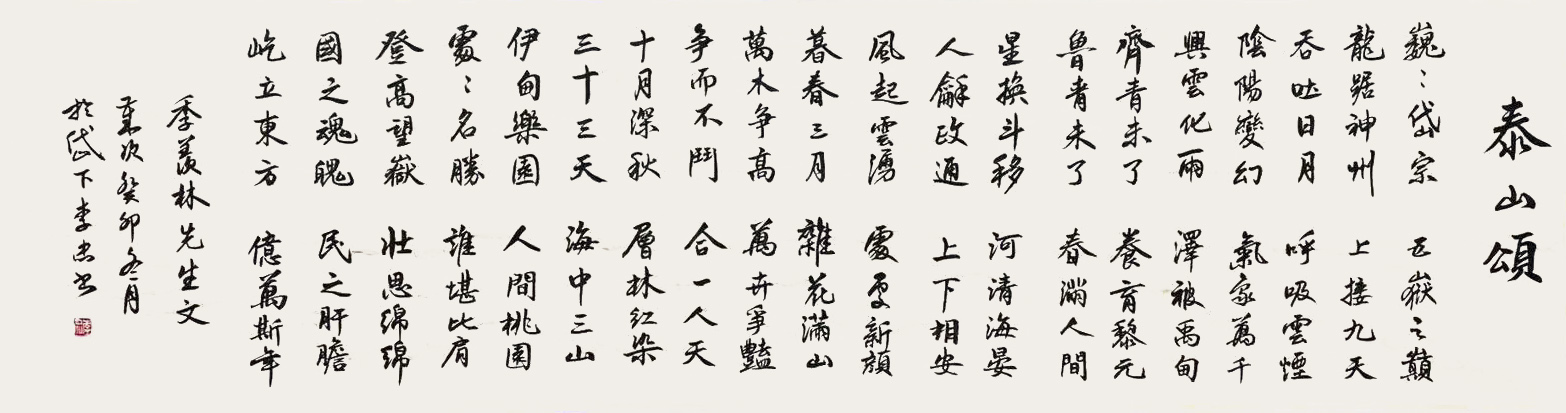 泰山頌
巍〻岱宗 五嶽之巔
龍踞神州 上接九天
吞吐日月 呼吸雲煙
陰陽變幻 氣象萬千
興雲化雨 澤被禹甸
齊青未了 養育黎元
魯青未了 春滿人間
星換斗移 河清海晏
人龢政通 上下相安
風起雲湧 處處新顔
暮春三月 雜花滿山
萬木争高 萬卉爭豔
争而不鬥 合一人天
十月深秋 層林紅染
三十三天 海中三山
伊甸樂園 人間桃園
處〻名勝 誰堪比肩
登高望嶽 壯思綿綿
國之魂魄 民之肝膽
屹立東方 億萬斯年
季羨林先生文
歲次癸卯冬月
於岱下李忠書